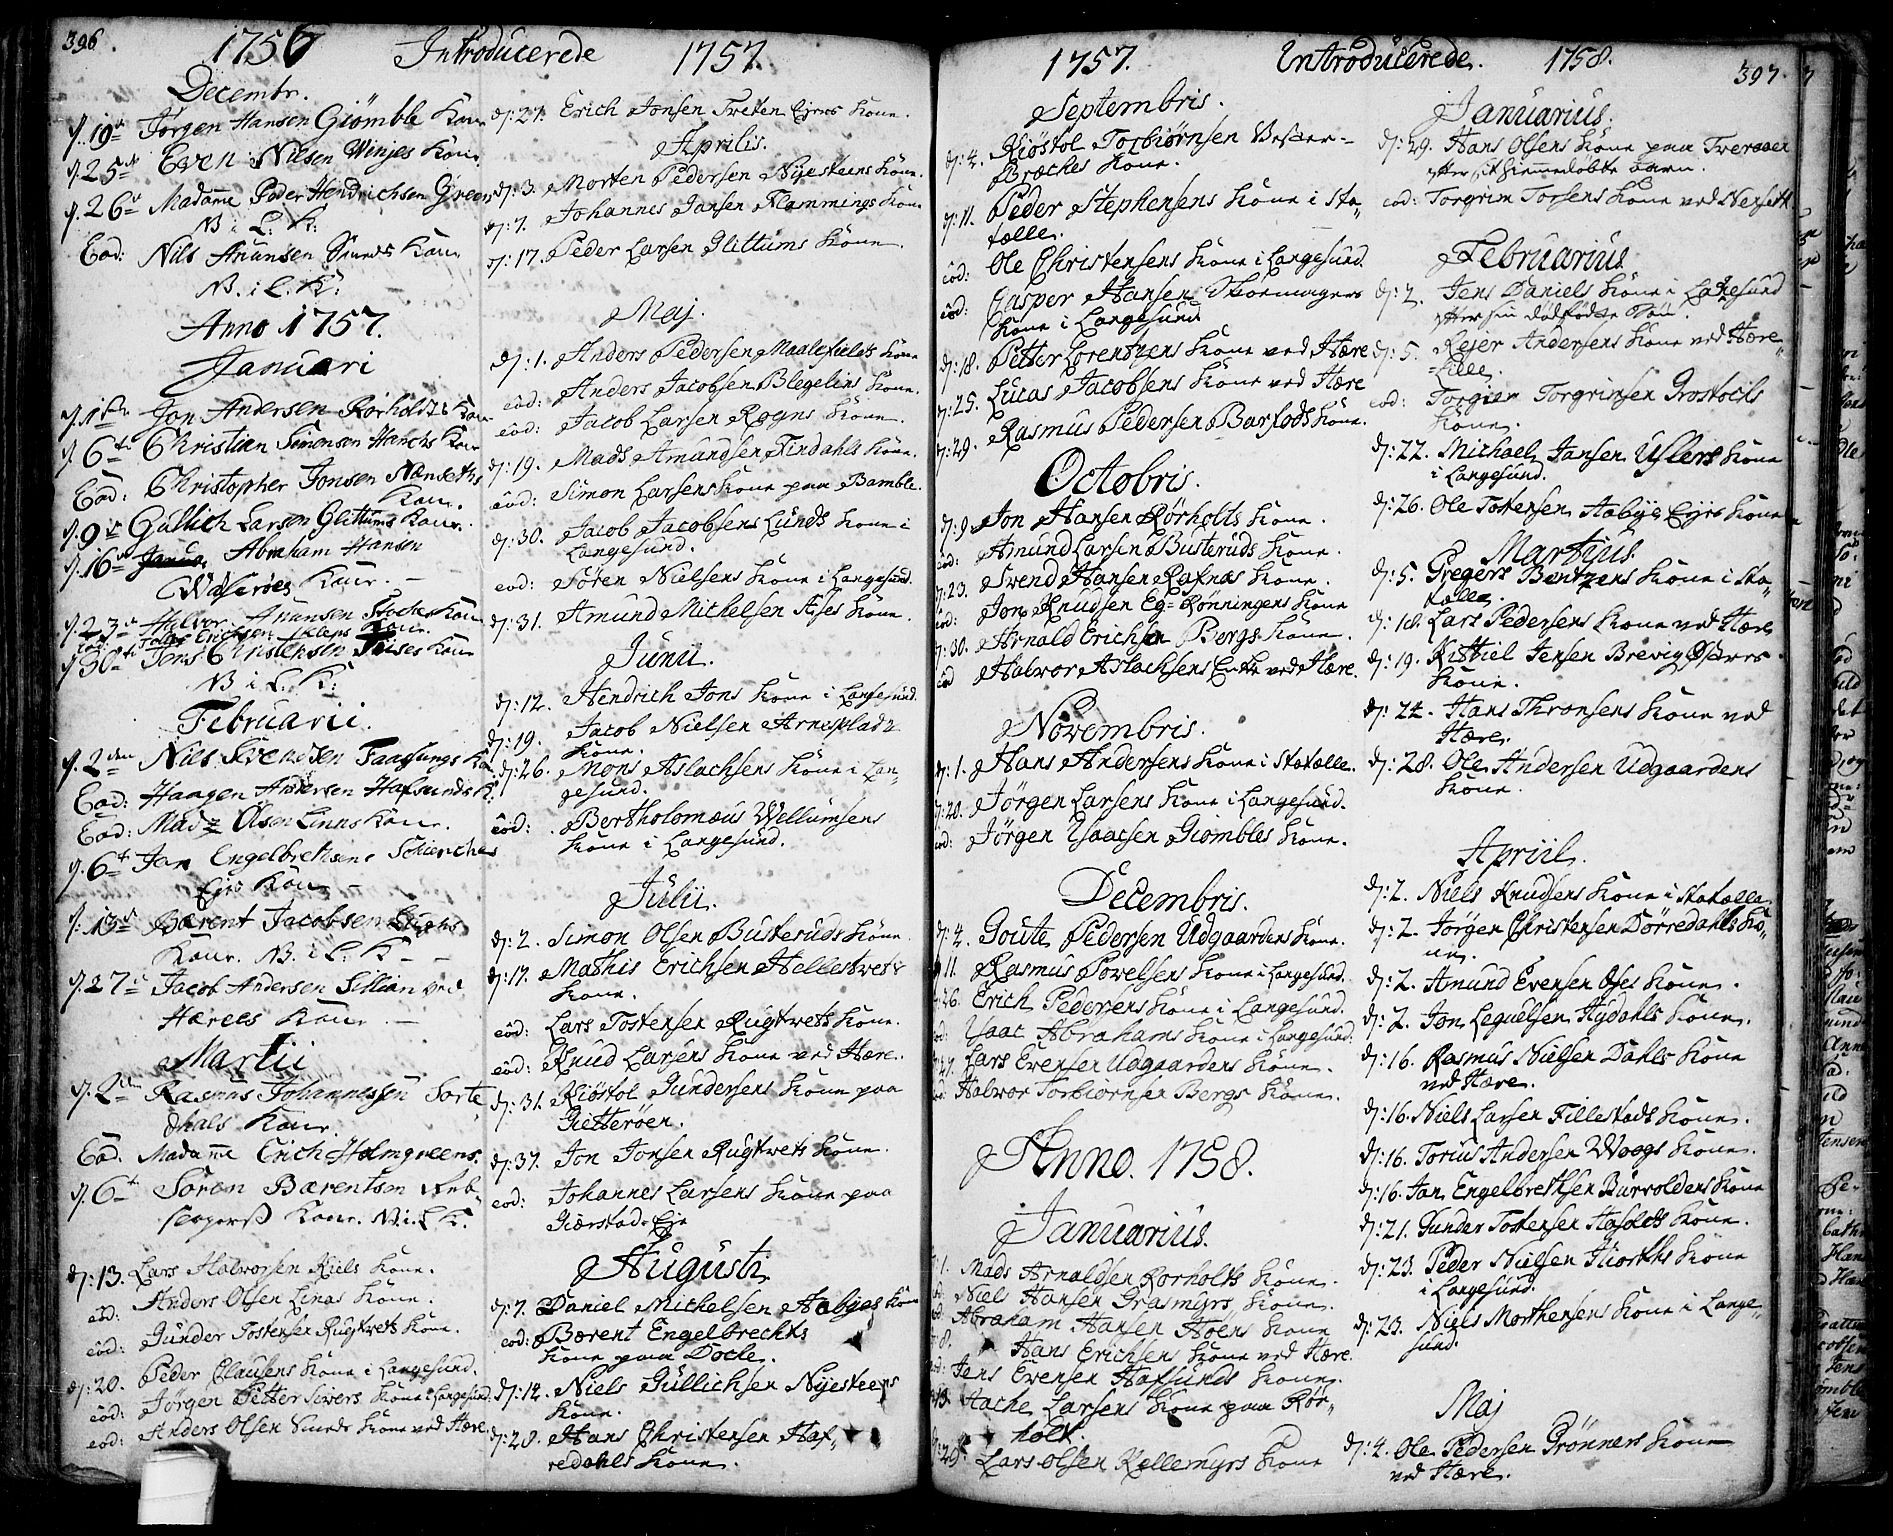 396.
1756 Introducerede 1757.
Decembr.
d. 19de Jørgen Hansen Giømble Kone
d. 25de Even Nilsen Winjes Kone
d. 26de Madame Peder Hendrichsen Green
N. i L. K:
Eod: Nils Anunsen Kone
N. i L. K:
Anno 1757.
Januari
d. 1ste Jon Andersen Rørholts Kone
d. 6te Christian Simonsen Kone
Eod: Christopher Jonsen
Kone.
d. 9de Gullich Larsen Glittums Kone.
d. 16de Abraham Hansen
Kone.
d. 23de Halvor Anunsen Kone
eod: Ericksen Kleps Kone.
d. 30te Jens Christensen Kone
N. i L. K:
Februarii.
d. 2den Nils Svendsen
Eod: Haagen Andersen Hafsunds K.
Eod: Madz Olsen Linns Kone.
d. 6te Jan Engelbrethsens
Ejes Kone
d. 13de Bærent Jacobsen
Kone. N. i L. K
d. 27de Jacob Andersen Sillian ved
Hærees Kone.
Martii
d. 2den Rasmus Johannessen Sorte
dhals Kone.
Eod. Madame Erich Holmgreens.
d. 6te Søren Bærentsen
Kone. N. i L K.
d: 13. Lars Halvorsen Kiels Kone.
eod: Anders Olsen Linas Kone.
eod: Gunder Tostensen Rugtvets Kone.
d: 20. Peder Clausens Kone i Langesund.
eod: Jørgen Petter Siwers Kone i Langesund.
eod: Anders Olsen Smeds Kone ved Hære.
d: 27. Erich Jonsen Treten Ejers Kone.
Aprilis.
d: 3. Morten Pedersen Nyesteens Kone.
d: 7. Johannes Jansen Flammings Kone
d: 17. Peder Larsen Glittums Kone.
Maj.
d: 1. Anders Pedersen Maalefieldt Kone
eod: Anders Jacobsen Blegelins Kone.
eod: Jacob Larsen Rogns Kone.
d: 19. Mads Amundsen Findahls Kone.
eod: Simon Larsens Kone paa Bamble.
d: 30. Jacob Jacobsens Lunds Kone i
Langesund.
eod: Søren Nielsens Kone i Langesund.
d: 31. Amund Michelsen Kone.
Junii.
d: 12. Hendrich Jons Kone i Langesund.
d: 19. Jacob Nielsen Arnesplads
Kone.
d: 26. Mons Aslachsens Kone i Lan-
gesund.
eod: Bertholomæus Wellumsens
Kone i Langesund.
Julii.
d: 2. Simon Olsen Busteruds Kone.
d: 17. Mathis Erichsen Hellestvets
Kone.
eod: Lars Tostensen Rugtvets Kone.
eod: Knud Larsens Kone ved Hære.
d: 31. Kiøstol Gundersens Kone paa
Gietterøen.
d: 37. Jon Jonsen Rugtvets Kone.
eod: Johannes Larsens Kone paa
Giærstads Eje
Augusti
d: 7. Daniel Michelsen Aabyes Kone
eod: Bærent Engelbrechts
Kone paa Docke.
d: 14. Niels Gullichsen Nyesteens
Kone.
d: 28. Hans Christensen Haf-
redahls Kone.
1757. Introducerede. 1758. 397.
Septembris.
d: 4. Kiøstol Torbiørnsen Vester-
Bræches Kone.
d: 11. Peder Stephensens Kone i Sta-
tælle.
eod: Ole Christensens Kone i Langesund.
eod: Casper Hansen Skoemagers
Kone i Langesund
d: 18. Petter Lorentzens Kone ved Hære
d: 25. Lucas Jacobsens Kone ved Hære
d: 29. Rasmus Pedersen Barfods Kone.
Octobris.
d: 9. Jon Hansen Rørholts Kone.
eod: Amund Larsen Busteruds Kone.
d: 23. Svend Hansen Rafnæs Kone.
eod: Jon Knudsen Eg-Rønningens Kone
d: 30. Arnald Erichsen Bergs Kone.
eod Halvor Aslachsens Enke ved Hære.
Novembris.
d: 1. Hans Andersens Kone i Statælle.
d: 20. Jørgen Larsens Kone i Langesund.
eod: Jørgen Ysaacsen Giømbles Kone.
Decembris.
d: 4. Goute Pedersen Udgaardens Kone.
d: 11. Rasmus Powelsens Kone i Langesund.
d: 26. Erich Pedersens Kone i Langesund.
eod: Ysaac Abrahams Kone i Langesund.
d: 27. Lars Evensen Udgaardens Kone.
eod: Halvor Torbiørnsen Bergs Kone.
Anno. 1758.
Januarius.
d: 1. Mads Arnaldsen Rorholts Kone.
eod: Niels Hansen Grasmyrs Kone.
eod: Abraham Hansen Hoens Kone
d: 8. Hans Erichsens Kone ved Hære.
eod: Jens Evensen Hafsunds Kone.
Aache Larsens Kone paa Rør-
holt.
d: 29. Lars Olsen Kellemyrs Kone
Januarius.
d: 29. Hans Olsens Kone paa Tveraaen
efter sit hiemmedøbte barn.
eod: Torgrim Torsens Kone ved
Februarius.
d: 2. Jens Daniels Kone i Langesund
efter sin dødfødte Søn.
d: 5. Rejer Andersens Kone ved Hære-
Lille.
eod: Torgier Torgrimsen Grostochs
Kone.
d: 22. Michael Jansen Uylers Kone
i Langesund.
d: 26. Ole Tostensen Aabye Ejes Kone
Martius.
d: 5. Gregers Bentzens Kone i Sta-
tælle.
d: 18. Lars Pedersens Kone ved Hære
d: 19. Kittiel Jensen Brevig Østres
Kone.
d: 24. Hans Thronsens Kone ved
Hære.
d: 28. Ole Andersen Udgaardens
Kone.
Apriil.
d: 2. Niels Knudsens Kone i Statælle
d: 2. Jørgen Christensen Dørredahls Ko-
ne.
d: 2. Amund Evensen Kone.
d: 2. Jon Leguelsen Hydahls Kone.
d: 16. Rasmus Nielsen Dahls Kone
ved Hære.
d: 16. Niels Larsen Fillestads Kone.
d: 16. Torius Andersen Woogs Kone.
d: 16. Jan Engelbrethsen Burvoldens Kone
d: 21. Gunder Tostensen Hasolets Kone.
d: 23. Peder Nielsen Hiorths Kone
i Langesund.
d: 23. Niels Morthensens Kone i Lange-
sund.
Maj
d: 4. Ole Pedersen Grønners Kone
ved Hære.